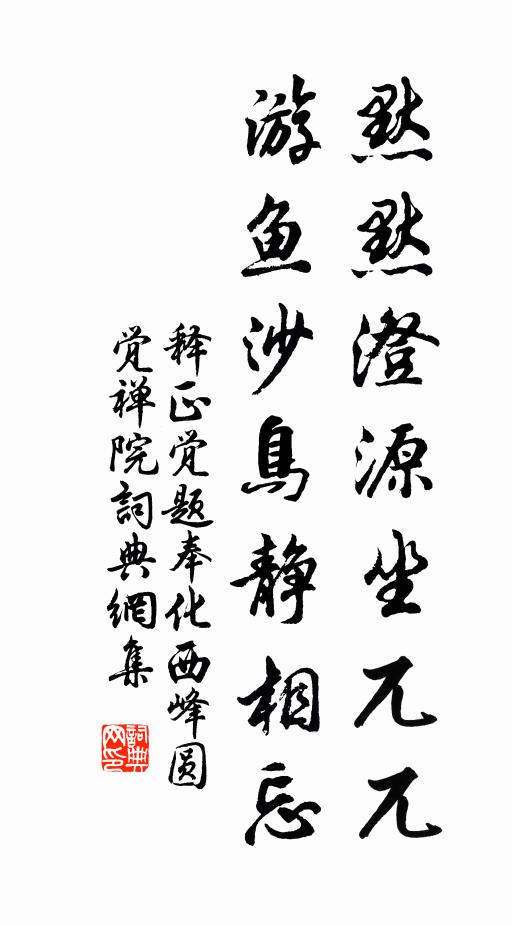 默默澄源坐兀兀
游鱼沙鸟静相忘
释正觉题奉化西峰圆
觉禅院詞典網集
詞典网印